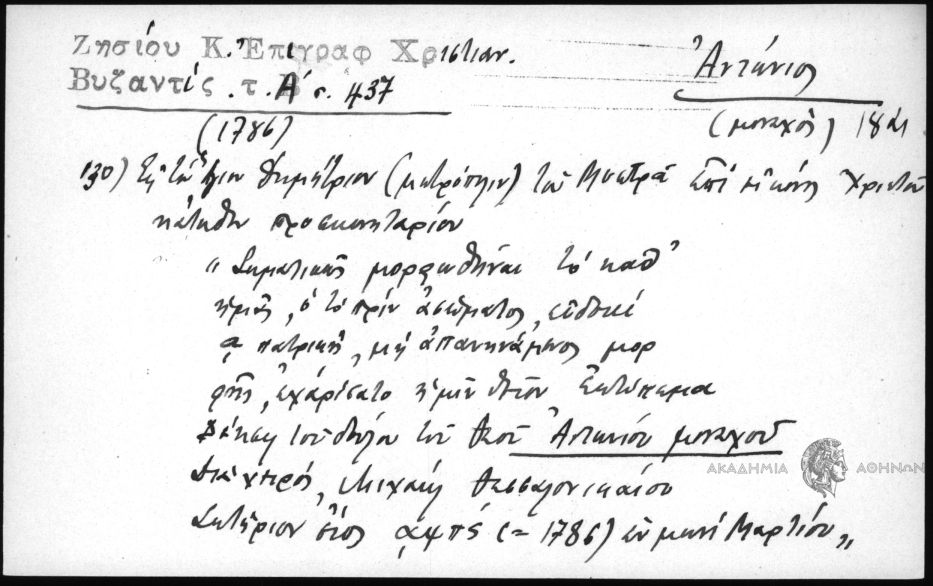 Ζησίου Κ. Ἐπιγραφ Χριστιαν.
Βυζαντίς . τ. Α΄ σ. 437
Ἀντώνιος
(1786)
(μοναχὸς) 18
130) Εἰς τὸν Ἅγιον Δημήτριον (μητρόπολιν) τοῦ Μυστρᾶ ἐπὶ εἰκόνος Χριστοῦ
κάτωθεν προσκυνηταρίου
"Σωματικῶς μορφωθῆναι τὸ καθ᾽
ἡμᾶς, ὁ τὸ πρὶν ἀσώματος, εὐδοκί
ᾳ πατρικῇ, μὴ ἀπανηνάμενος μορ
φῆς, ἐχάρισατο ἡμῖν θεῖον ἐκτύπωμα
Δέησις τοῦ δούλου τοῦ Θεοῦ Ἀντωνίου μοναχοῦ
Διὰ χειρός, Μιχαὴλ Θεσσαλονικαίου
Σωτήριον ἔτος αψπς (= 1786) ἐν μηνὶ Μαρτίου "
ΑΚΑΔΗΜΙΑ ΑΘΗΝΩΝ